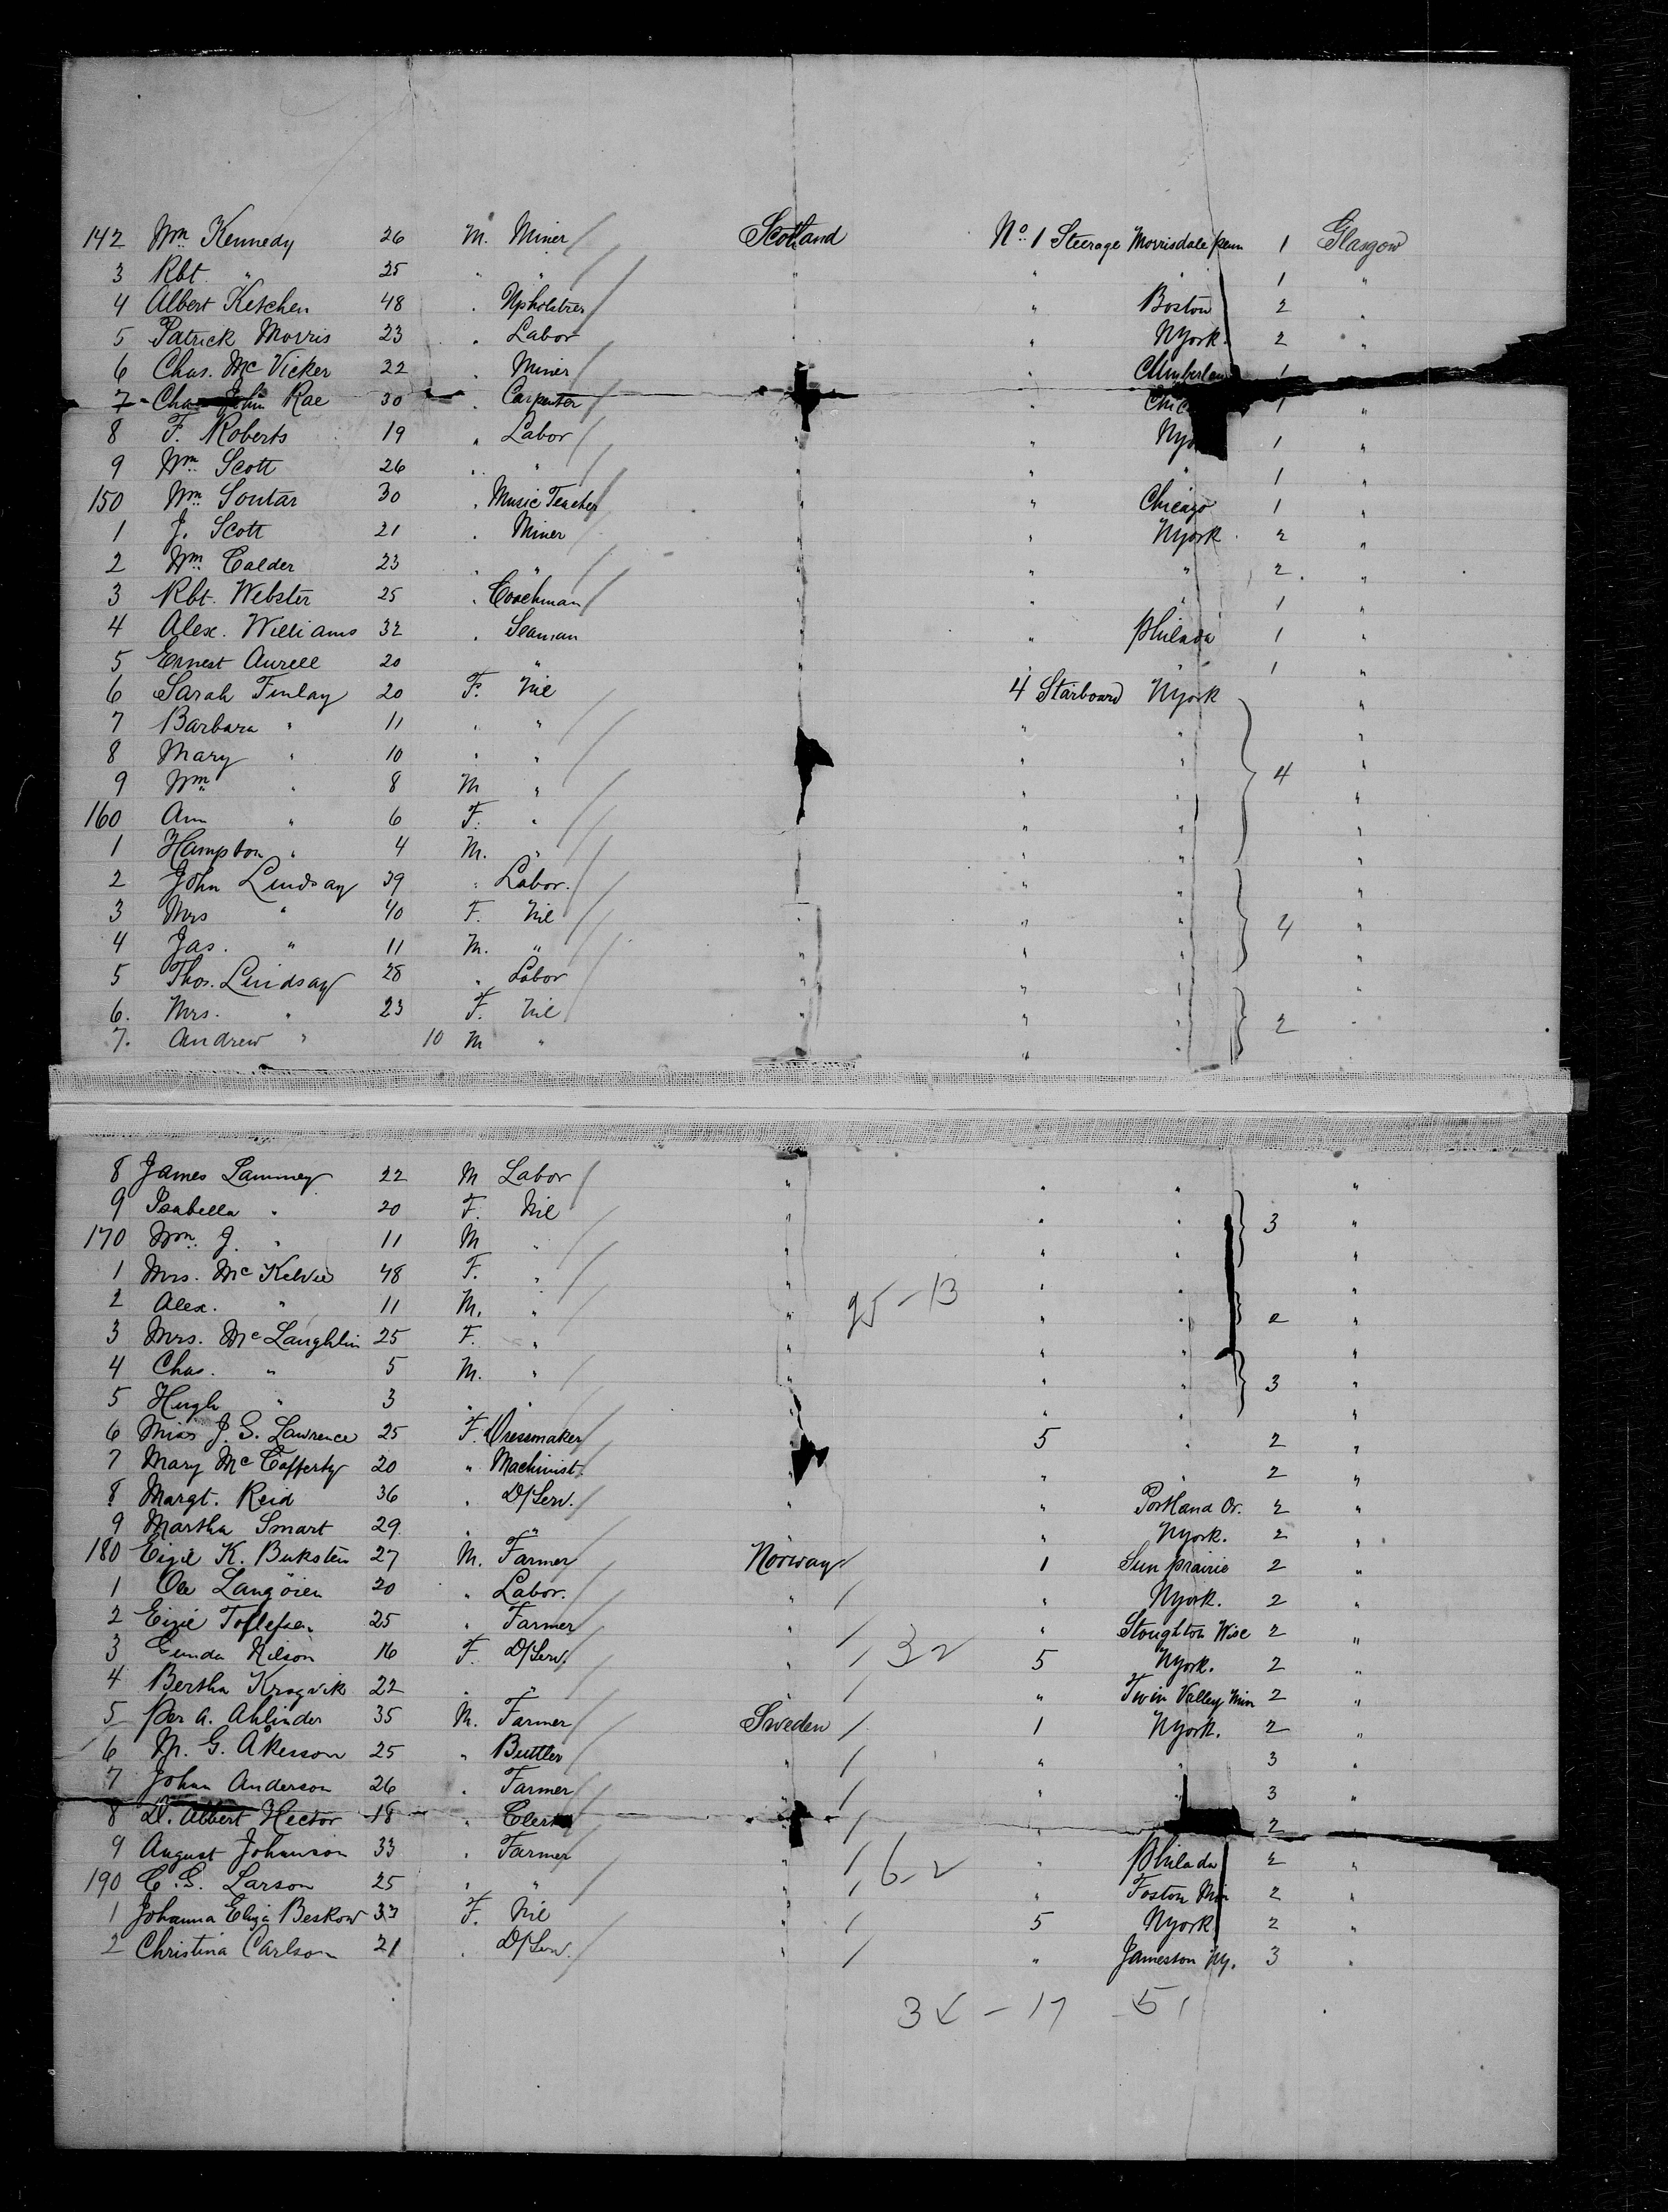 142 Wm Kennedy 26 M. Miner Scotland No. 1 Steerage Morrisdale penn 1 Glasgow
3 Rbt. " 25 " " " " " 1 "
4 Albert Ketchen 48 " Upholstrer " " Boston 2 "
5 Patrick Morris 23 " Labor " " NYork. 2 "
6 Chas. McVicker 22 " Miner " 1
7 John Rae 30 " Carpenter " 1 "
8 F. Roberts 19 " Labor " " 1 "
9 Wm Scott 26 " " " " " 1 "
150 Wm Soutar 30 " Music Teacher " " Chicago 1 "
1 J. Scott 21 " Miner " " NYork 2 "
2 Wm Calder 23 " " " " " 2 "
3 Rbt. Webster 25 " Coachman " " " 1 "
4 Alex. Williams 32 " Seaman " " Philada 1 "
5 Ernest Aurell 20 " " " " 1 "
6 Sarah Finlay 20 F. Nil " 4 Starboard NYork "
7 Barbara " 11 " " " " " "
8 Mary " 10 " " " " " "
9 Wm " 8 M " " " " 4 "
160 Ann " 6 F. " " " " "
1 Hampton " 4 M. " " " " "
2 John Lindsay 39 " Labor. " " " "
3 Mrs " 40 F. Nil " " " 4 "
4 Jas. " 11 M. " " " " "
5 Thos. Lindsay 28 " Labor " " " "
6. Mrs. " 23 F. Nil " " " 2 "
7. Andrew " 10 M " " "
8 James Lammey 22 M Labor " " " "
9 Isabella " 20 F. Nil " " " 3 "
170 Wm. J. " 11 M " " " " "
1 Mrs. McKelvie 48 F. " " " " "
2 Alex. " 11 M. " " 25-13 " " 2 "
3 Mrs. McLaughlin 25 F. " " " " "
4 Chas. " 5 M. " " " " 3 "
5 Hugh " 3 " " " " " "
6 Miss J. S. Lawrence 25 F. Dressmaker " 5 " 2 "
7 Mary McCafferty 20 " Machinist. " " " 2 "
8 Margt. Reid 36 " D/Serv. " " Portland Or. 2 "
9 Martha Smart 29. " " " NYork. 2 "
180 K. 27 M. Farmer Norway 1 Sun prairie 2 "
1 Ole Langöien 20 " Labor. " " NYork. 2 "
2 Tollefsen 25 " Farmer " " Stoughton Wisc 2 "
3 Nilson 16 F. D/Serv. " 32 5 NYork. 2 "
4 Bertha Krogvik 22 " " " " Twin Valley Min 2 "
5 Per A. Ahlinder 35 M. Farmer Sweden 1 NYork. 2 "
6 G. Åkesson 25 " Buttler " " " 3 "
7 Johan Anderson 26 " Farmer " " " 3 "
8 D. Albert Hector 18 " Clerk 2 "
9 August Johanson 33 " Farmer 62 " Philada 2 "
190 C. G. Larson 25 " " " " Foston Min 2 "
1 Johanna Beskow 33 F. Nil " 5 NYork 2 "
2 Christina Carlson 21 " D/Serv. " Jameston Ny. 3 "
34 - 17 51